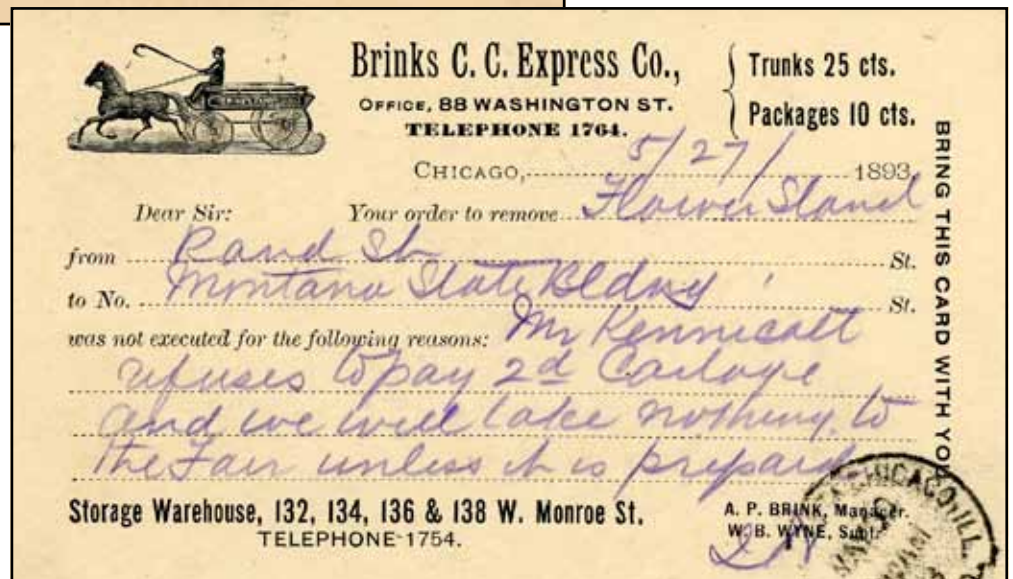 Brinks C. C. Express Co.,
OFFICE, 88 WASHINGTON ST.
TELEPHONE 1764.
Trunks 25 cts.
Packages 10 cts.
CHICAGO, 5/27/ 1893
Dear Sir: Your order to remove Flower Stand
from Rand St. St.
to No. Montana State Bldng St.
was not executed for the following reasons: Mr Kennicott
refuses to pay 2d Cartage
and we will take nothing to
the Fair unless it is prepaid
BRING THIS CARD WITH YOU
Storage Warehouse, 132, 134, 136 & 138 W. Monroe St.
TELEPHONE 1754.
A. P. BRINK, Manager.
W. B. WYNE, Supt.
CHICAGO, ILL.